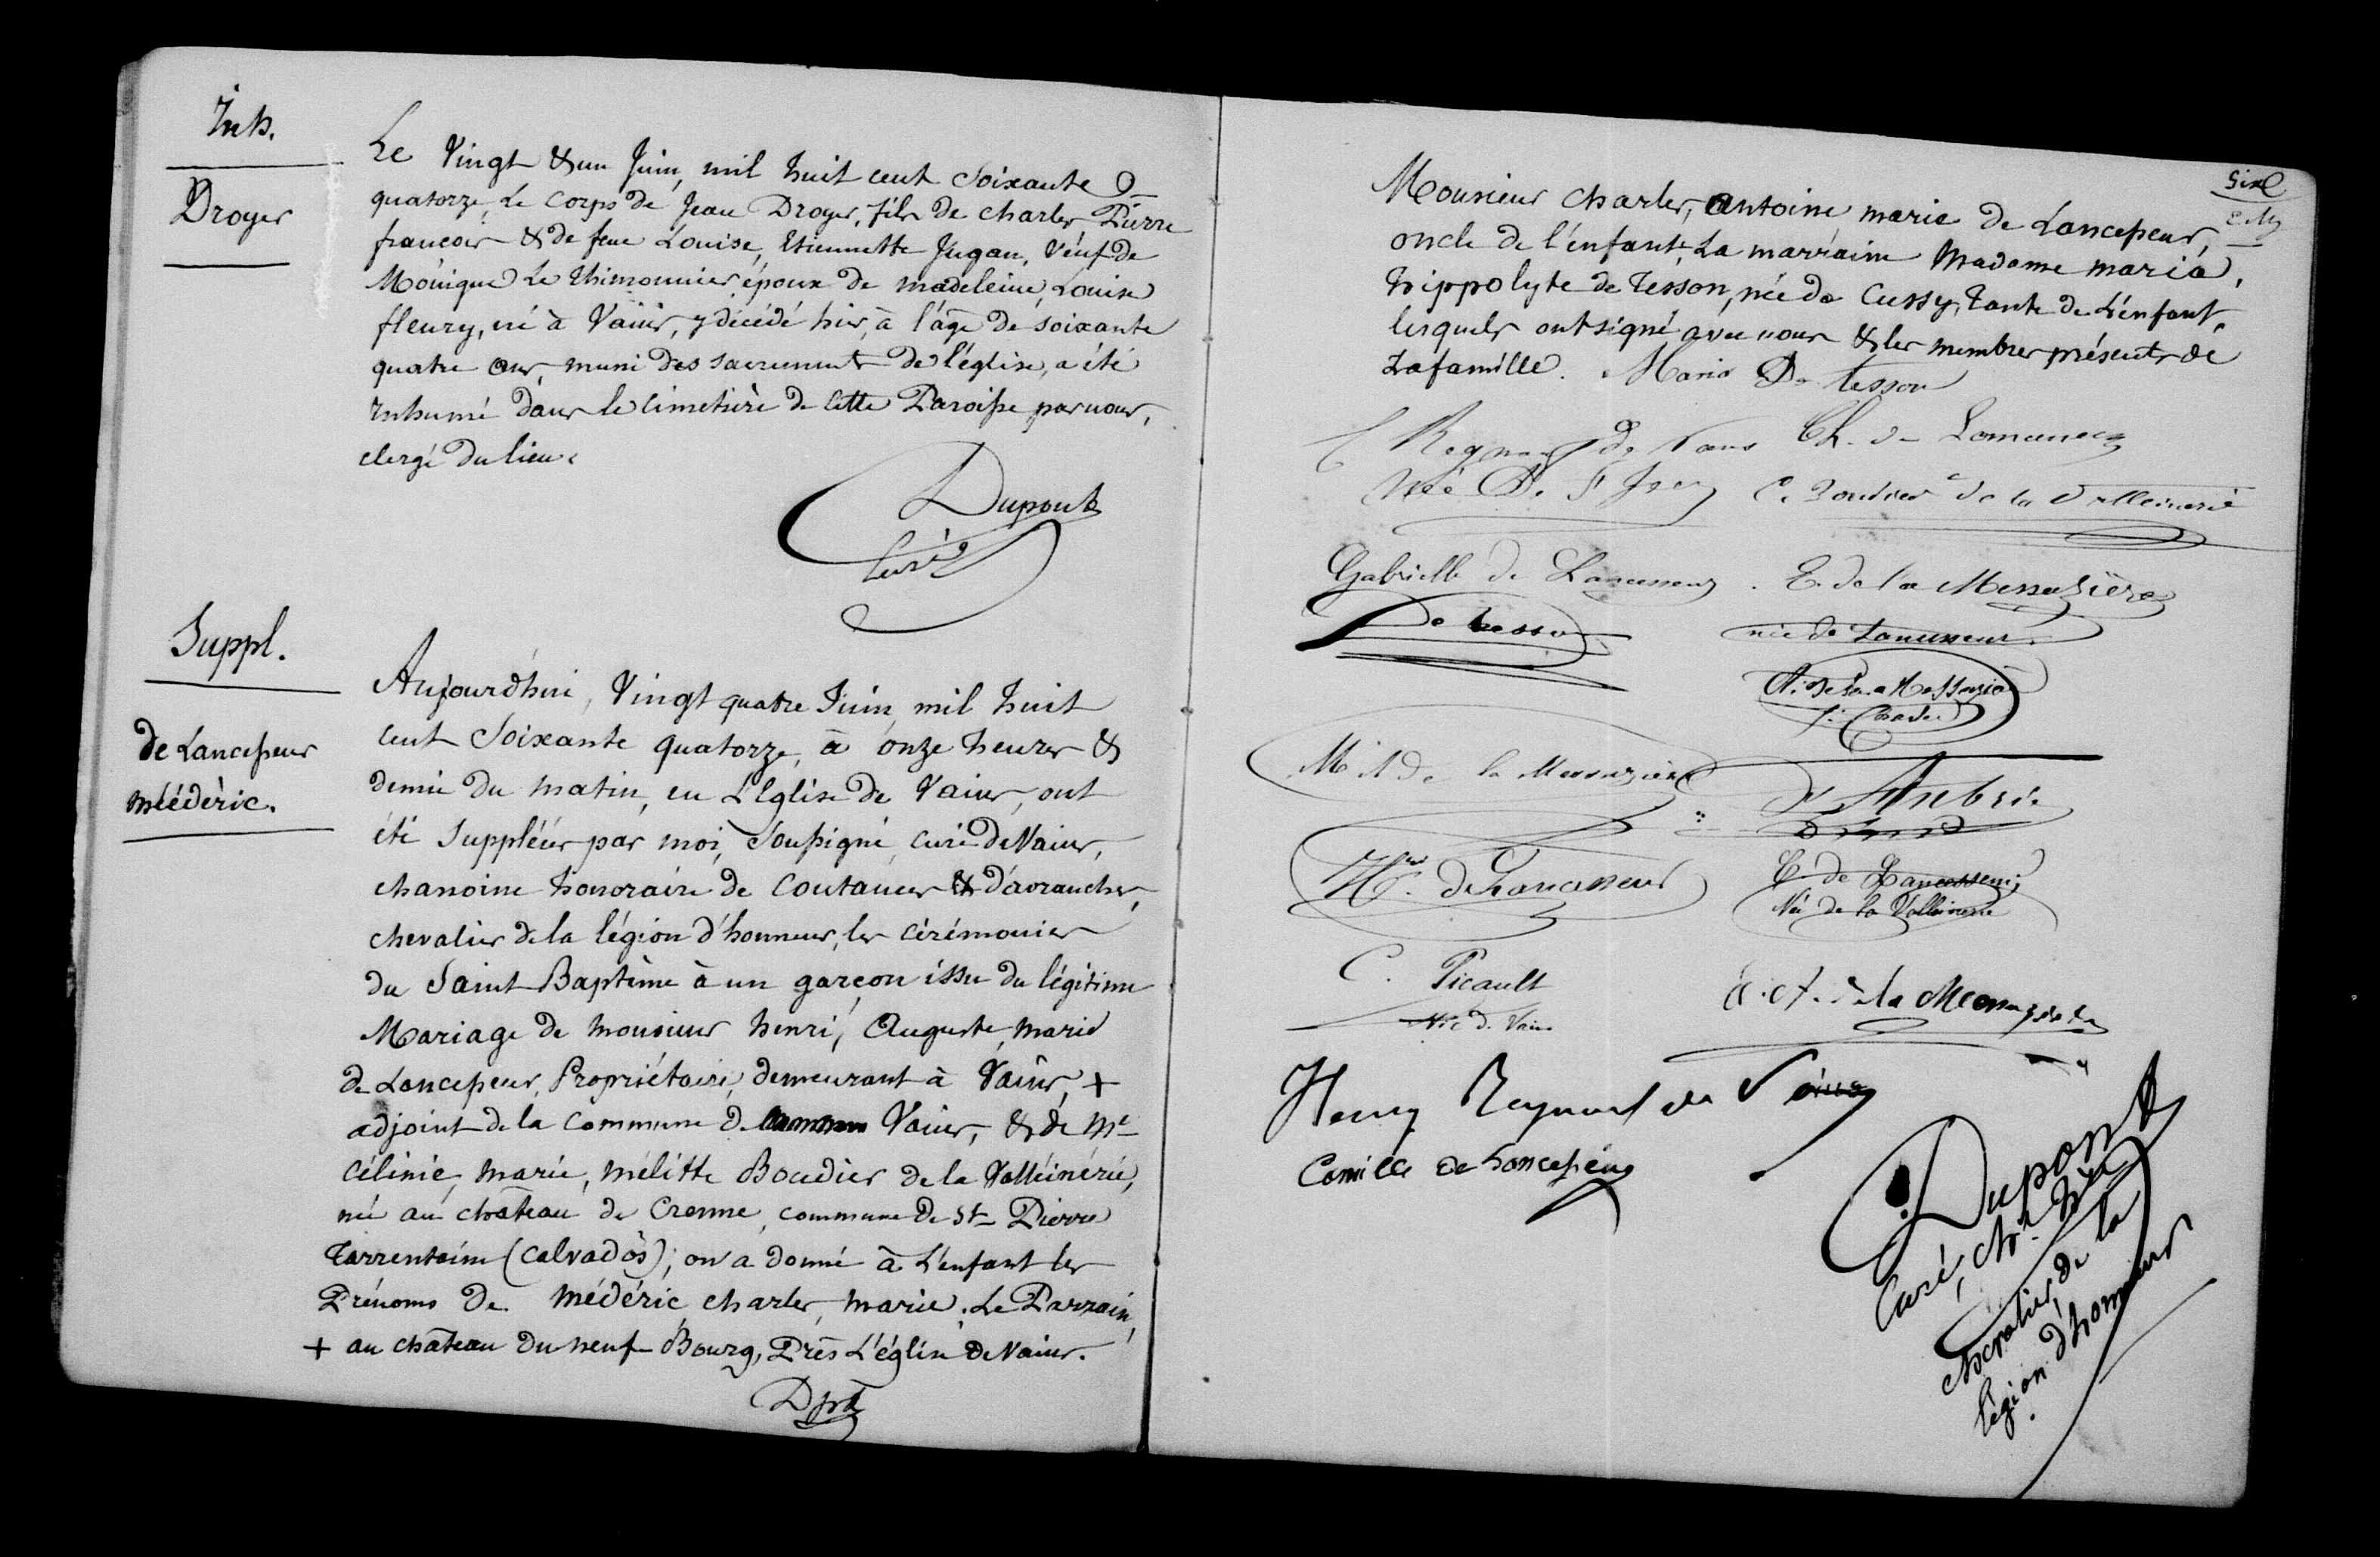 Inh.
Droyer
Le Vingt & un Juin, mil huit cent Soixante
quatorze, Le Corps de Jean Droyer, fils de charles Pierre
francois & de feue Louise, Etiennette Jugan, Veuf de
Monique Le Thimonnier, époux de madeleine, Louise
fleury, né à Vains, y décédé hier, à l'âge de soixante
quatre ans, muni des sacrements de l'église, a été
Inhumé dans le cimetière de cette Paroisse par nous,
clergé du lieu.
Dupont
Curé
Suppl.
de Lancesseur
Médéric.
Aujourd'hui, Vingt quatre Juin mil huit
cent Soixante quatorze, à onze heures &
demie du matin, en L'Eglise de Vains, ont
été Suppléées par moi, Soussigné, curé de Vains,
chanoine honoraire de Coutances & d'avranches,
chevalier de la légion d'honneur, les cérémonies
du Saint Baptême à un garçon issu du légitime
Mariage de monsieur henri, Auguste, marie
de Lancesseur, Propriétaire, demeurant à Vains, +
adjoint de la commune de Vains, & de Me
Célinie, marie, mélitte Boudier de la Valleinerie,
né au château de Cronne, commune de St Pierre
Tarrentaine (Calvados); on a donné à L'enfant les
Prénoms de Médéric, charles, marie. Le Parrain,
+ au château du neuf-Bourg, Près L'église de Vains.
Dpt
Monsieur charles, antoine marie de Lancesseur,
oncle de l'enfant, La marraine Madame maria,
hippolyte de Tesson, née de Cussy, Tante de L'enfant,
lesquels ont signé avec nous & les membres présents de
La famille. Maria De Tesson
de Vains Ch. de
Née C. Boudier de la Valleinerie
Gabrielle de Lancesseur. E. de la Messuzière
De Tesson née de Lancesseur
A. de la Messuzière
M A de la Messuzière
Hri de Lancesseur C de Lancesseur
Née de la Valleinerie
C. Picault
née de Vains
de la Messuzière
Henry Regnouf de Vains
Camille de Lancesseur
Dupont
Curé, ch. hre
chevalier de la
légion d'honneur